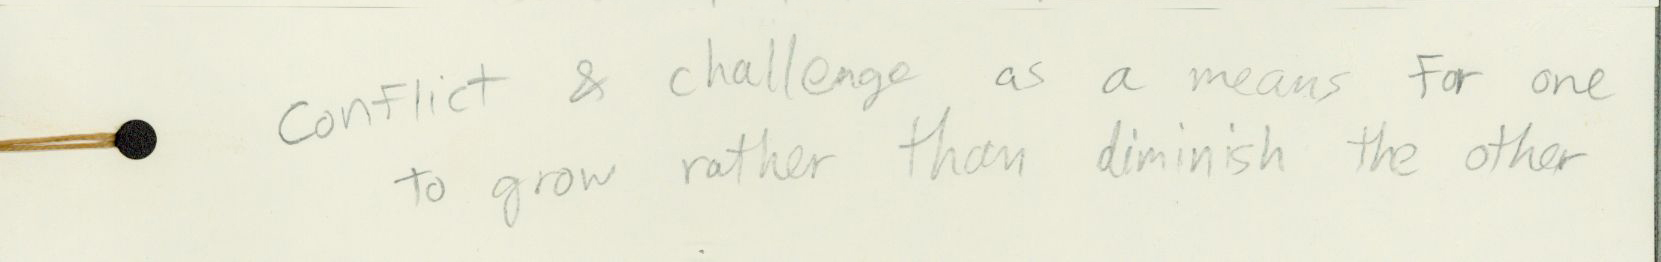 Conflict & challenge as a means For one
to grow rather than diminish the other